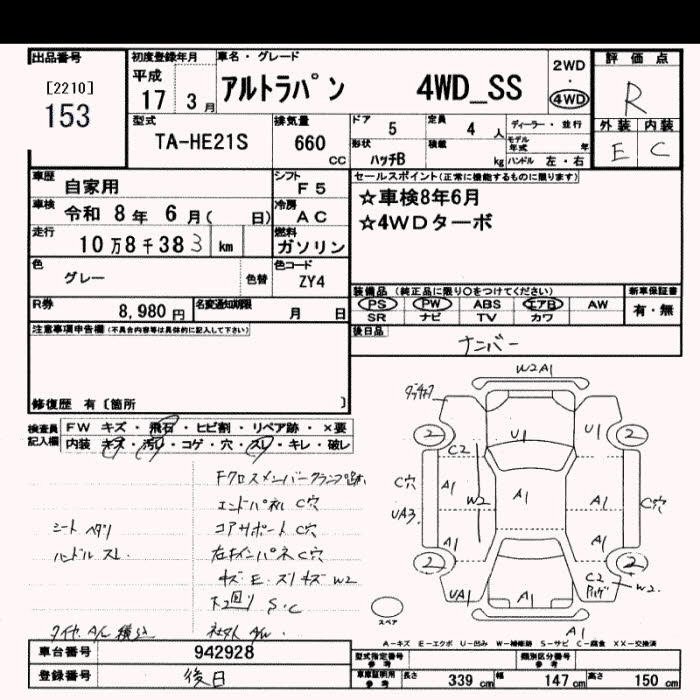 出品番号
[2210]
153
初度登録年月
平成
17 3月
車名・グレード
アルトラパン 4WD_SS
2WD
・
4WD
評価点
R
外装 内装
E C
型式
TA-HE21S
排気量
660
cc
ドア 5 定員 4 人
形状 ハッチB 積載 kg
ディーラー・並行
モデル年式 年
ハンドル 左・右
車歴 自家用
車検 令和 8年 6月( 日)
走行 10万8千383 km
シフト F5
冷房 AC
燃料 ガソリン
色 グレー 色替
色コード ZY4
R券 8,980円
名変通知期限 月 日
セールスポイント(正常に機能するものに限ります)
☆車検8年6月
☆4WDターボ
装備品(純正品に限り○をつけてください)
PS PW ABS エアB AW
SR ナビ TV カワ
新車保証書
有・無
後日品
ナンバー
注意事項申告欄(不具合内容等は具体的に記入して下さい)
修復歴 有〔箇所 〕
検査員記入欄
FW キズ・飛石・ヒビ割・リペア跡・×要
内装 キズ・汚れ・コゲ・穴・スレ・キレ・破レ
Fクロスメンバークランプ跡
エンドパネル C穴
シート ヘタリ
コアサポート C穴
ハンドル スレ
右左インパネ C穴
キズ・E・スリキズ W2
下回り S・C
タイヤ、A/L積込
社外A/W.
W2A1
2
2
U1
U1
C2
C穴
A1
W2
A1
A1
C穴
UA3.
A1
A1
2
2
UA1
A1
C2
W2.
A1
スペア
A-キズ E-エクボ U-凹み W-補修跡 S-サビ C-腐食 XX-交換済
車台番号 942928
登録番号 後日
型式指定番号 参考
類別区分番号 参考
車庫証明用 参考 長さ 339cm 幅 147cm 高さ 150cm